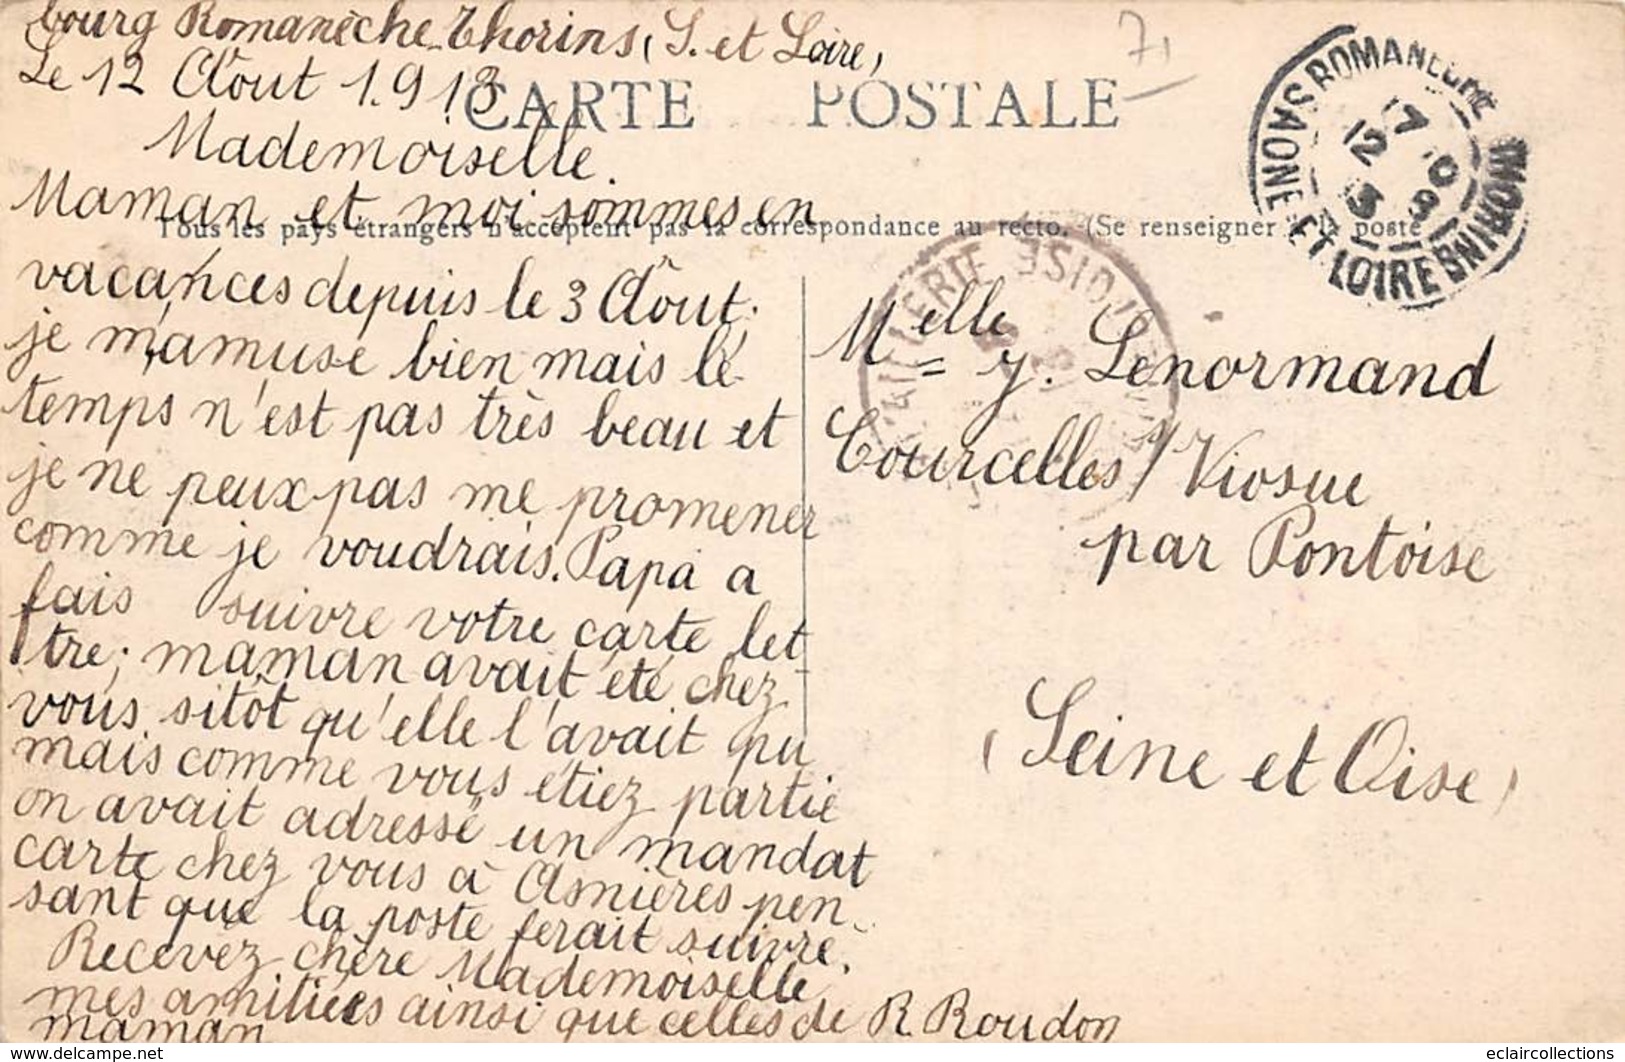 bourg Romanèche-Thorins, (S. et Loire,
Le 12 Août 1.913
CARTE POSTALE
71
Mademoiselle.
Maman et moi sommes en
Tous les pays étrangers n'acceptent pas la correspondance au recto. (Se renseigner à la poste
vacances depuis le 3 Août.
je m'amuse bien mais le
temps n'est pas très beau et
je ne peux pas me promener
comme je voudrais. Papa a
fais suivre votre carte let
tre; maman avait été chez
vous sitôt qu'elle l'avait pu
mais comme vous étiez partie
on avait adressé un mandat
carte chez vous à Asnières pen-
sant que la poste ferait suivre.
Recevez chère Mademoiselle
mes amitiées ainsi que celles de R. Roudon
maman
Melle y. Lenormand
Courcelles s/ Viosne
par Pontoise
(Seine et Oise)
ROMANECHE THORINS
SAONE ET LOIRE
12
eclaircollections